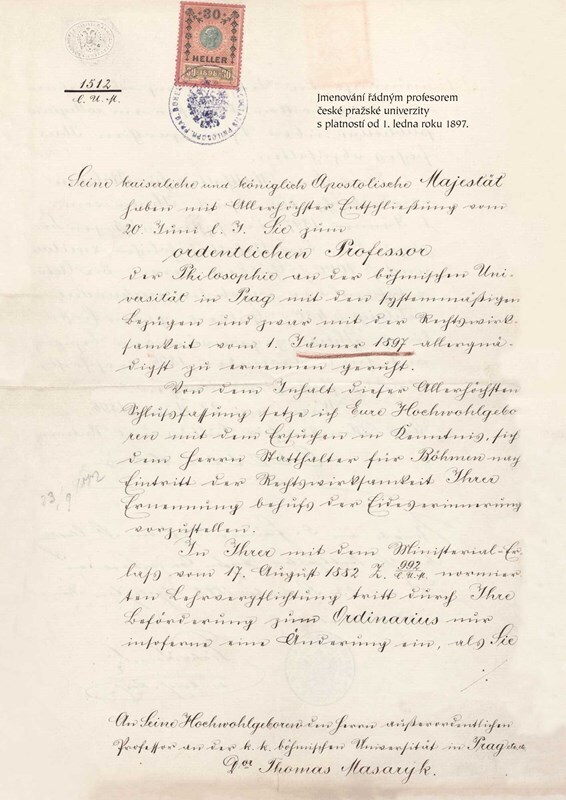 1512
C. U. M.
30
HELLER
Jmenování řádným profesorem
české pražské univerzity
s platností od 1. ledna roku 1897.
Seine kaiserliche und königlich Apostolische Majestät
haben mit Allerhöchster Entschließung vom
20. Juni l. J. Sie zum
ordentlichen Professor
der Philosophie an der böhmischen Uni-
versität in Prag mit den systemmäßigen
Bezügen und zwar mit der Rechtswirk-
samkeit vom 1. Jänner 1897 allergnä-
digst zu ernennen geruht.
Von dem Inhalt dieser Allerhöchsten
Schlussfassung setze ich Eure Hochwohlgebo
ren mit dem Ersuchen in Kenntnis, sich
dem Herrn Statthalter für Böhmen nach
Eintritt der Rechtswirksamkeit Ihrer
Ernennung behufs der Eideserinnerung
vorzustellen.
In Ihrer mit dem Ministerial-Er-
lass vom 17. August 1882 Z. 992 C. U. M. normier
ten Lehrverpflichtung tritt durch Ihre
Beförderung zum Ordinarius nur
insoferne eine Änderung ein, als Sie
An Seine Hochwohlgeboren den Herrn außerordentlichen
Professor an der k. k. böhmischen Universität in Prag
Dor Thomas Masaryk.